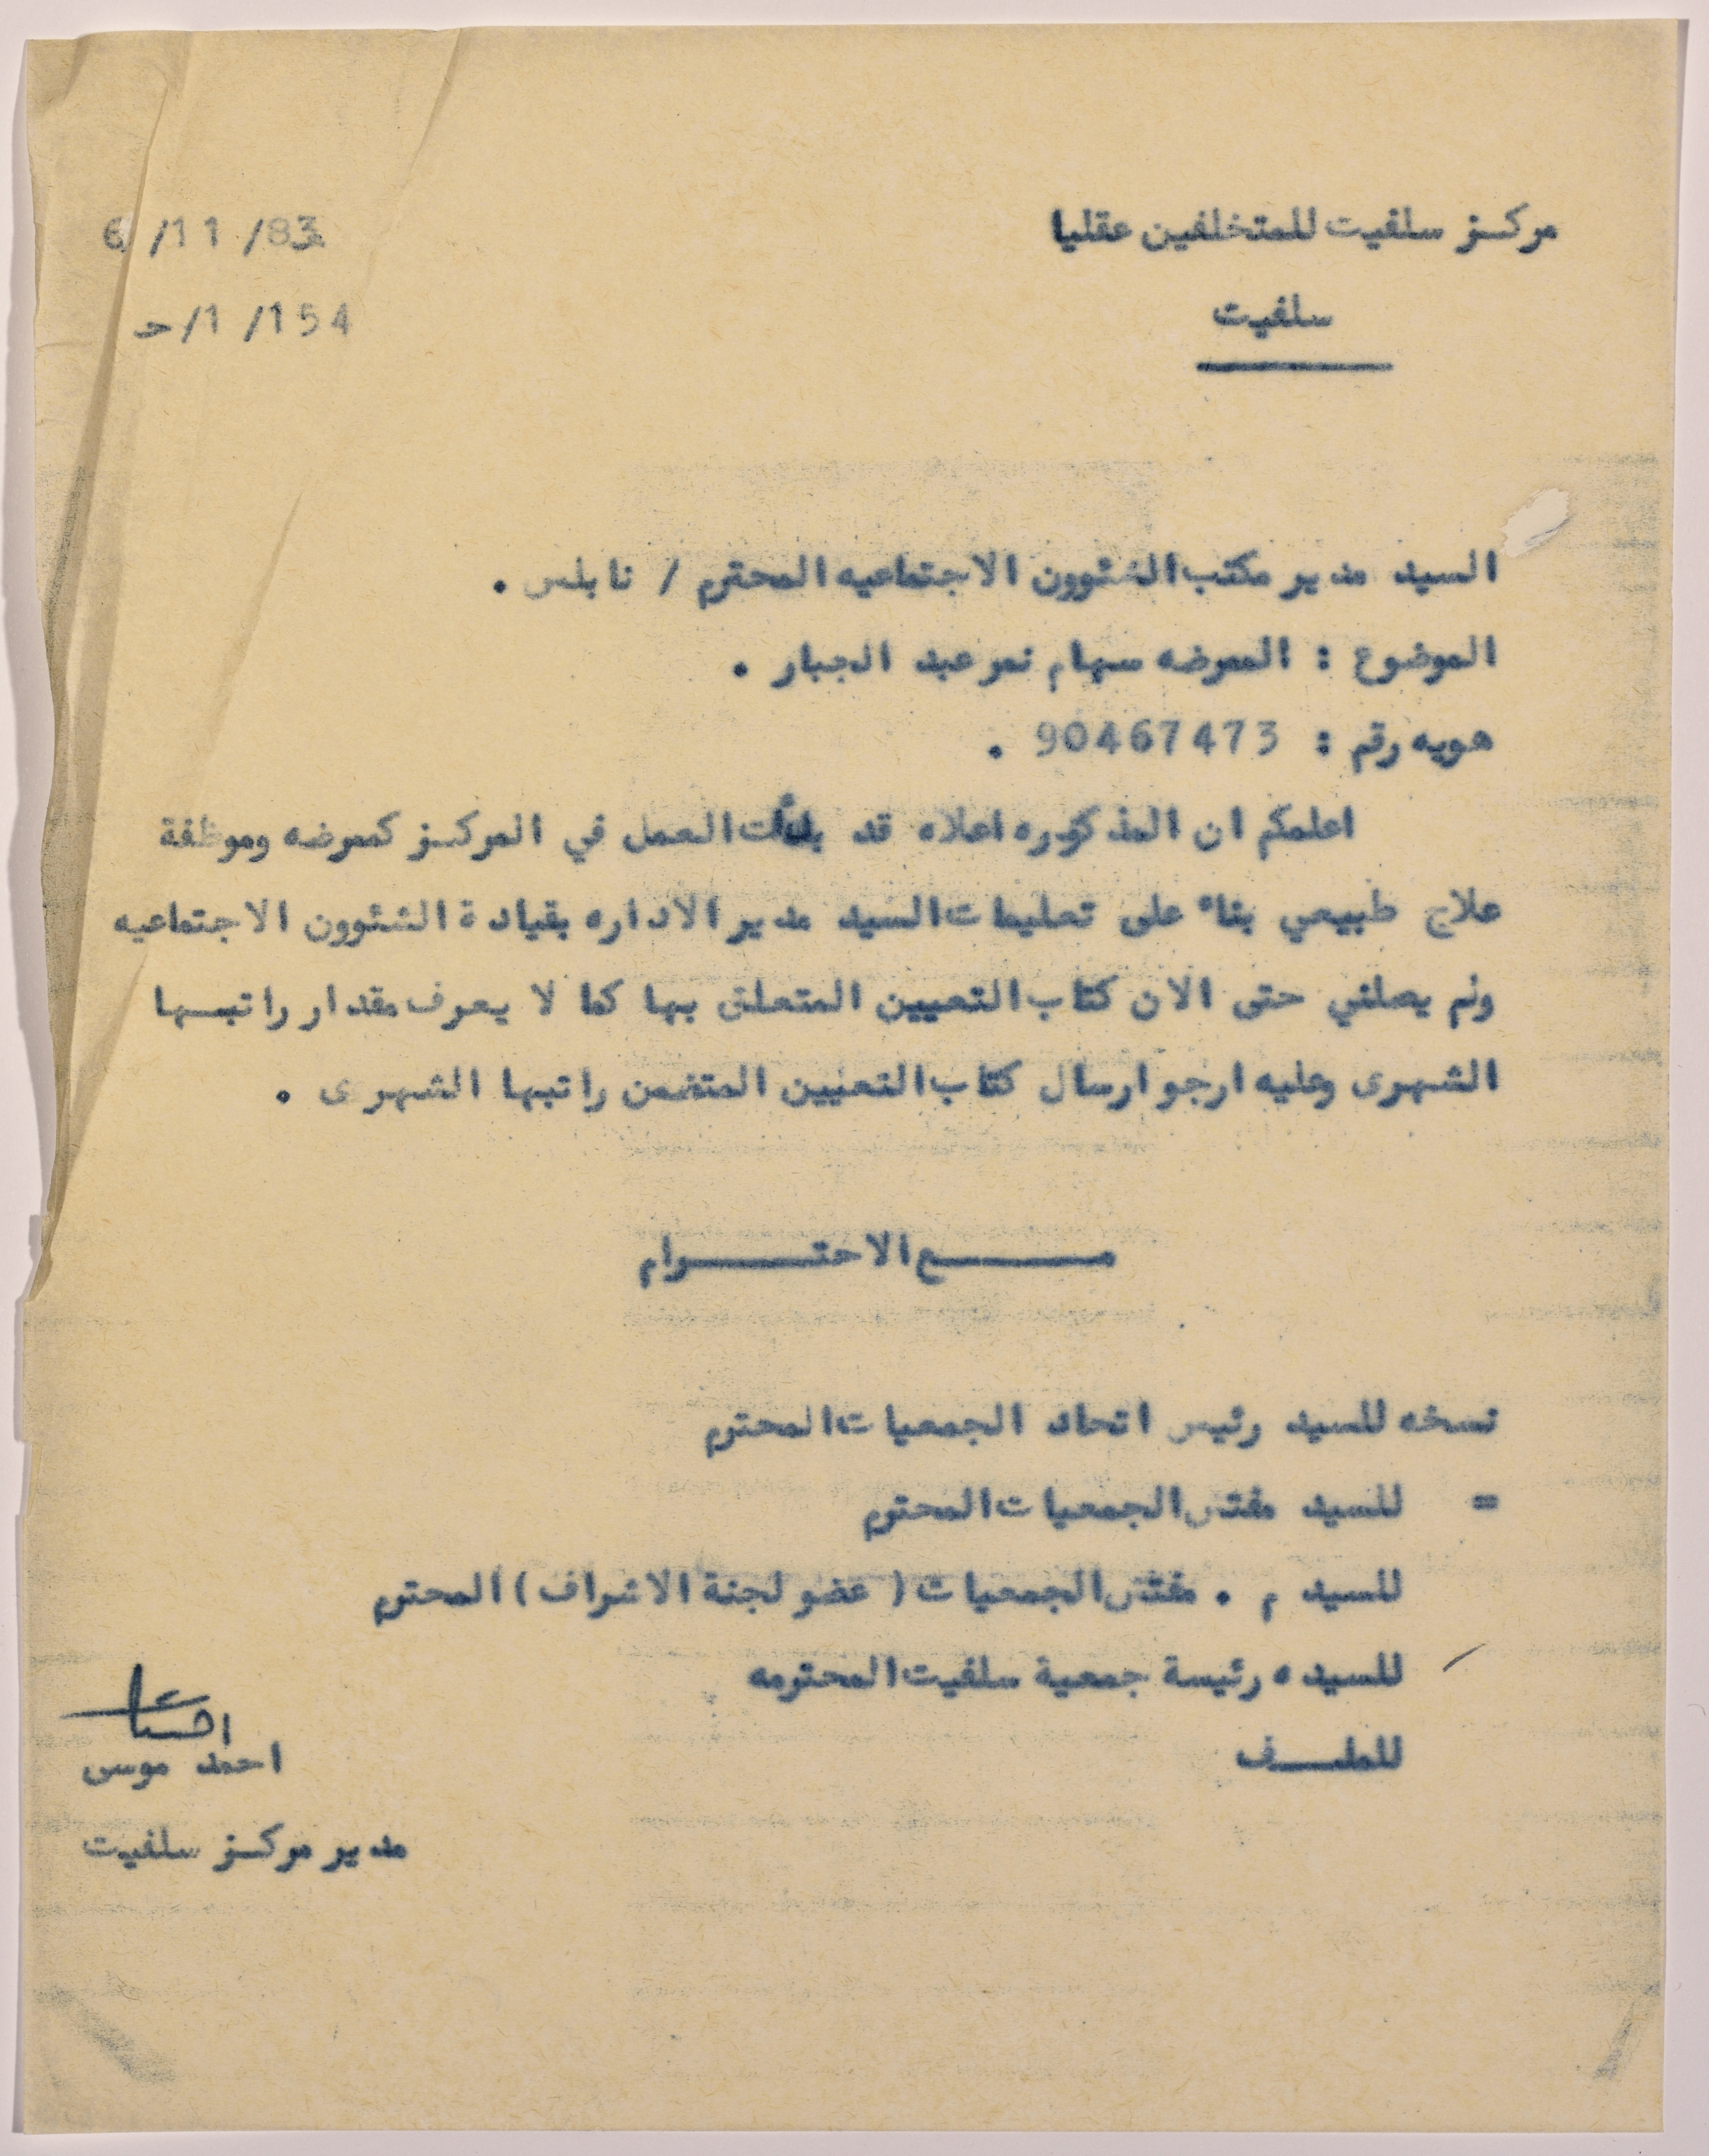 مركز سلفيت للمتخلفين عقليا
6/11/83
سلفيت
ح/1/154
السيد مدير مكتب الشئوون الاجتماعيه المحترم / نابلس .
الموضوع : الممرضه سهام نمر عبد الجبار .
هويه رقم : 90467473 .
اعلمكم ان المذكوره اعلاه قد بدأت العمل في المركز كممرضه وموظفة
علاج طبيعي بناء على تعليمات السيد مدير الاداره بقيادة الشئوون الاجتماعيه
ولم يصلني حتى الان كتاب التعيين المتعلق بها كما لا يعرف مقدار راتبها
الشهرى وعليه ارجو ارسال كتاب التعيين المتضمن راتبها الشهرى .
مع الاحترام
نسخه للسيد رئيس اتحاد الجمعيات المحترم
= للسيد مفتش الجمعيات المحترم
للسيد م . مفتش الجمعيات ( عضو لجنة الاشراف ) المحترم
للسيده رئيسة جمعية سلفيت المحترمه
للملف
احمد موسى
مدير مركز سلفيت